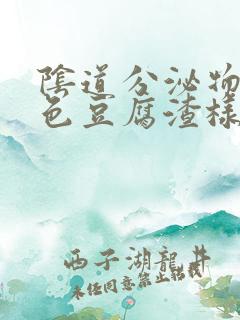 陰道分泌物
色豆腐渣樣
西子湖龍井
未经同意禁止转载